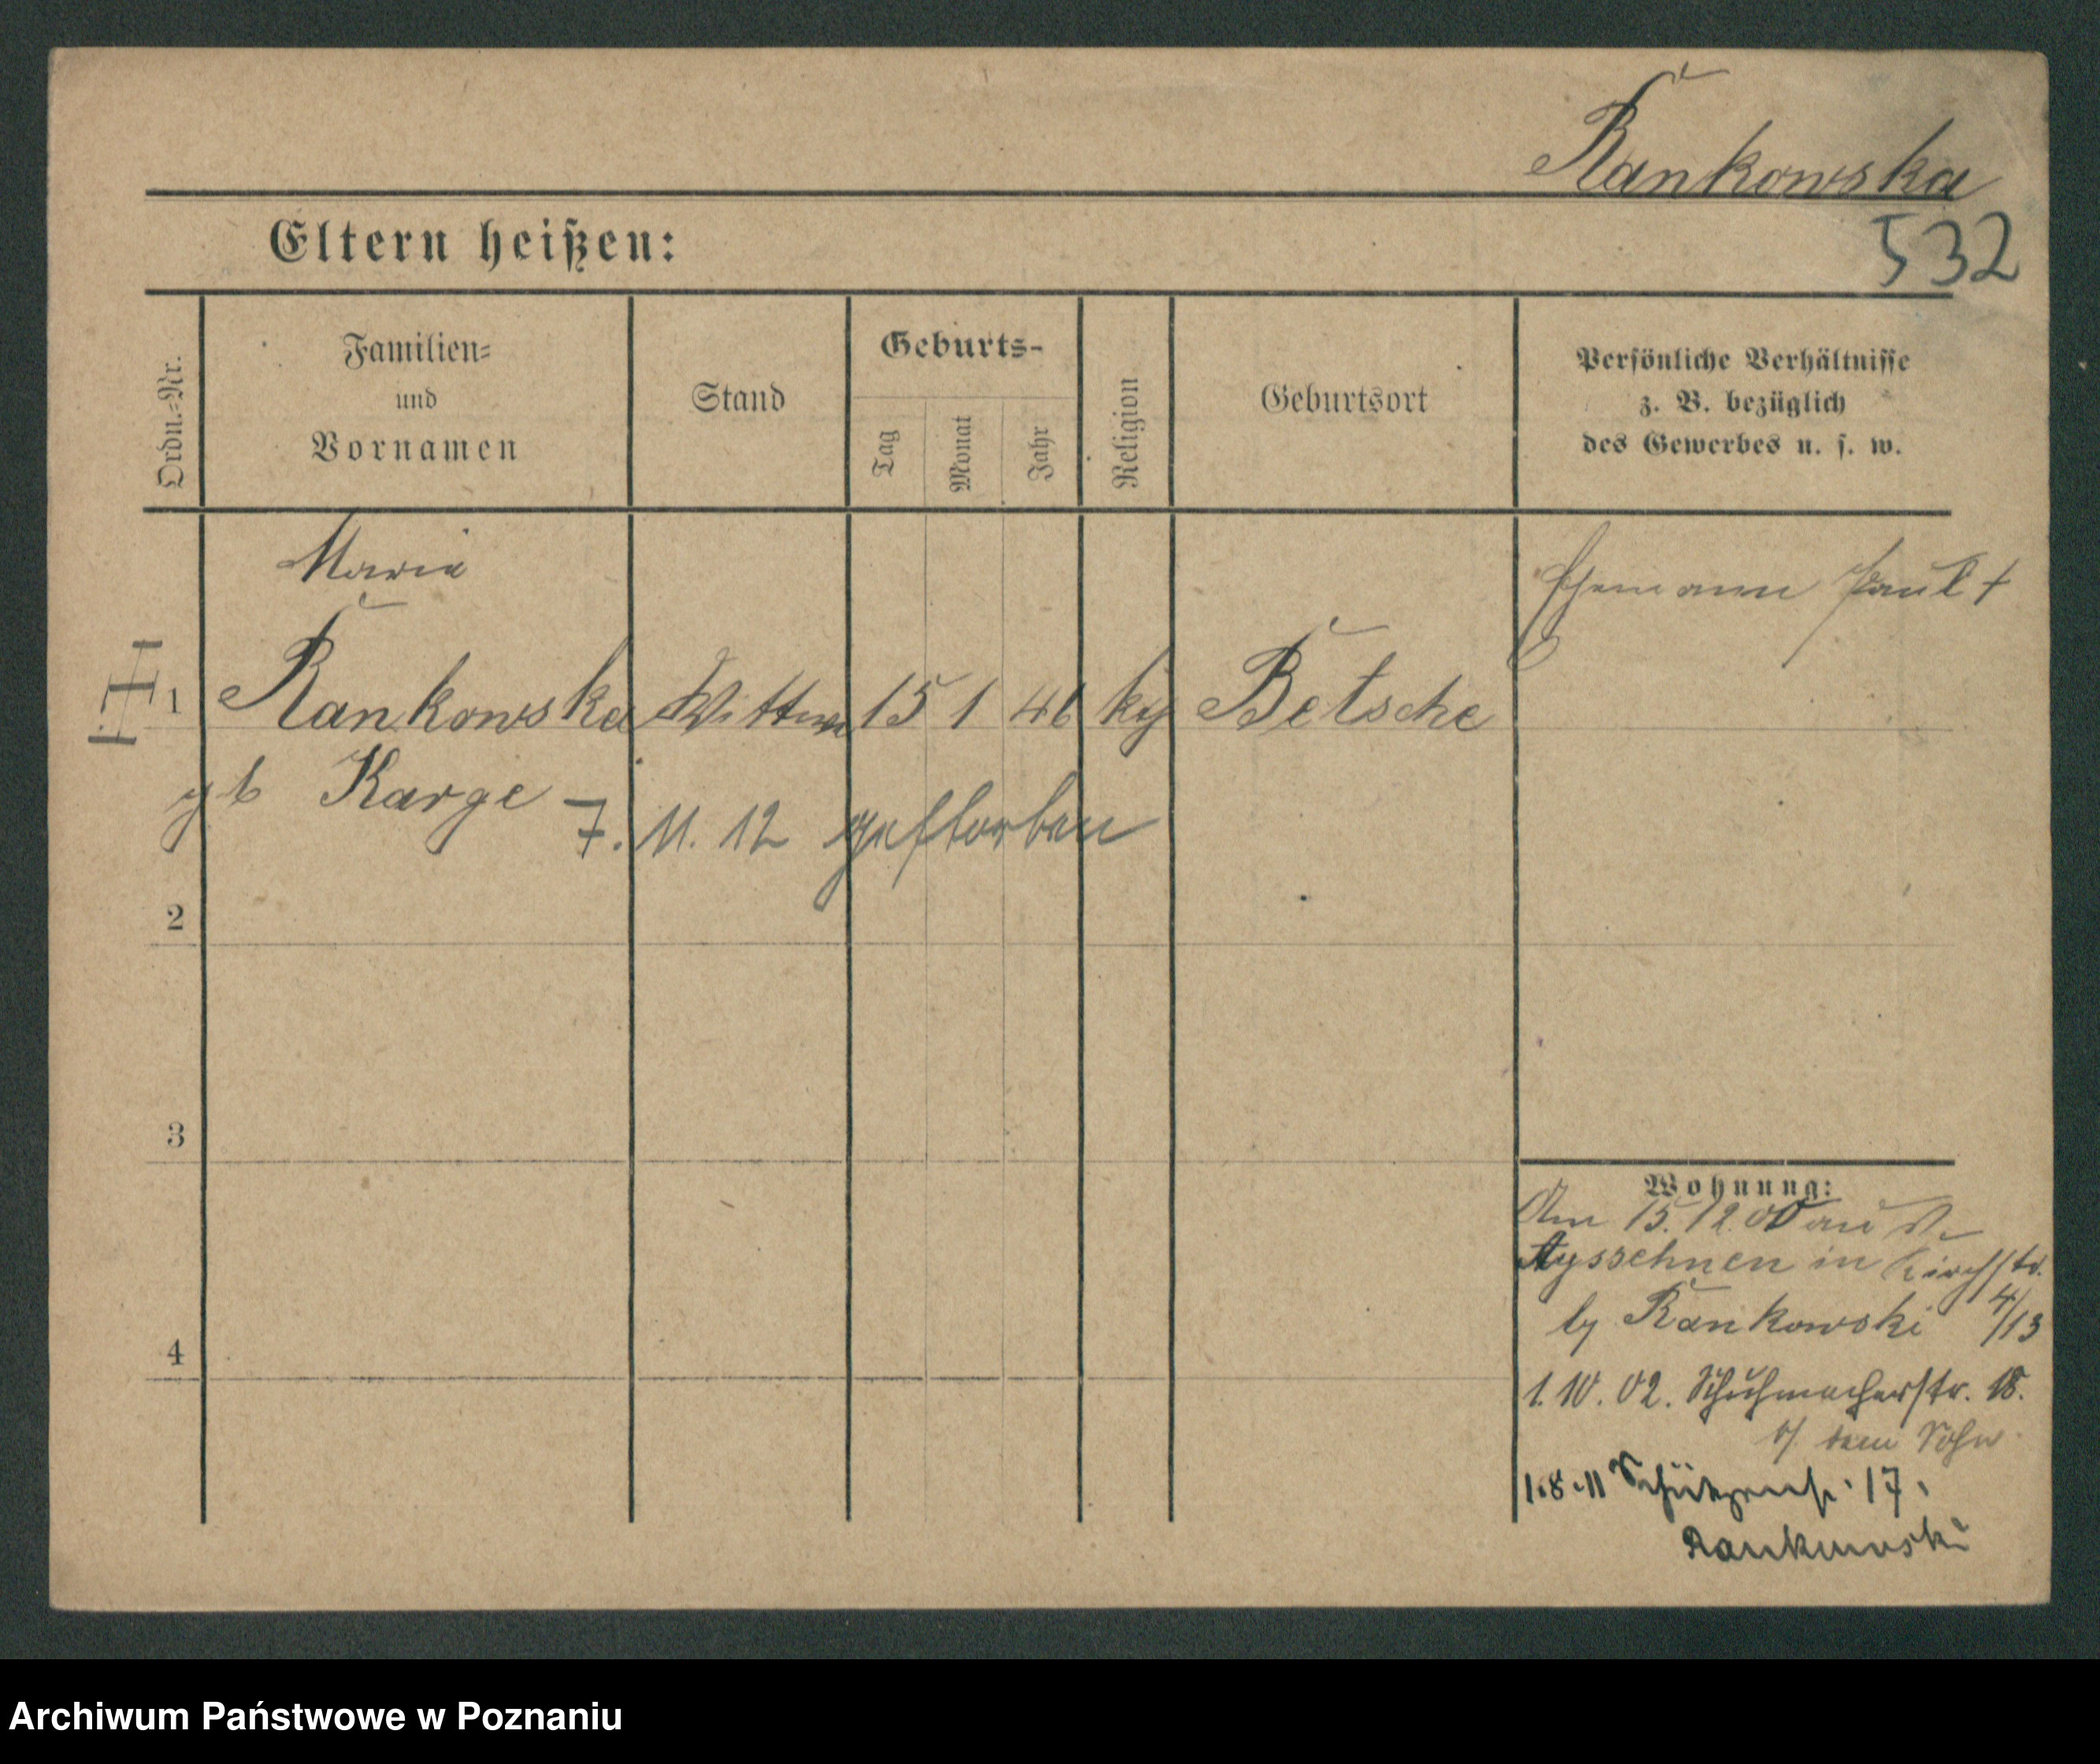 Rankowska
532
Eltern heißen:
Ordn.=Nr.
Familien=
und
Vornamen
Stand
Geburts-
Tag
Monat
Jahr
Religion
Geburtsort
Persönliche Verhältnisse
z. B. bezüglich
des Gewerbes u. s. w.
Maria
Ehemann Paul †
1 Rankowska Wittwe 15 1 46 Betsche
gb Karge
7. 11. 12 gestorben
2
3
4
Wohnung:
Am 15.12.00 aus
in Kirchstr.
Rankowski 4/13
1.10.02. Schuhmacherstr. 18.
b/ dem Sohn
1.8.11 Schützenstr. 17.
Rankowski
Archiwum Państwowe w Poznaniu